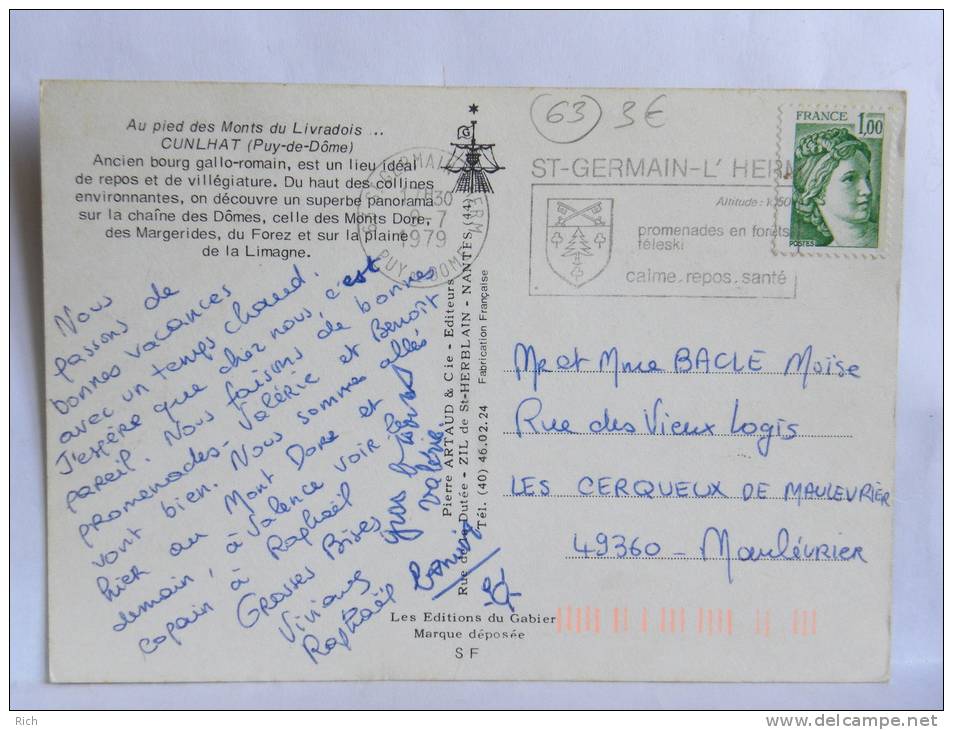 63 3€
Au pied des Monts du Livradois ...
CUNLHAT (Puy-de-Dôme)
Ancien bourg gallo-romain, est un lieu idéal
de repos et de villégiature. Du haut des collines
environnantes, on découvre un superbe panorama
sur la chaîne des Dômes, celle des Monts Dore,
des Margerides, du Forez et sur la plaine
de la Limagne.
1979
PUY-DE-DOME
ST-GERMAIN-L'HERM
Altitude:
promenades en forêts
téleski
calme.repos.santé
FRANCE 1,00
POSTES
Nous
passons de
bonnes vacances
avec un temps chaud.
J'espère que chez nous, c'est
pareil. Nous faisons de bonnes
promenades. Valérie et Benoît
vont bien. Nous sommes allés
hier au Mont Dore et
demain, à Valence voir le
copain à Raphaël
Grosses Bises
Viviane
Raphaël
gros bisous
Valérie.
Pierre ARTAUD & Cie - Editeurs
Rue Dutée - ZIL de St-HERBLAIN - NANTES (44)
Tél. (40) 46.02.24 Fabrication Française
Les Editions du Gabier
Marque déposée
S F
Mr et Mme BACLE Moïse
Rue des Vieux Logis
LES CERQUEUX DE MAULEVRIER
49360 - Maulévrier
Rich
www.delcampe.net